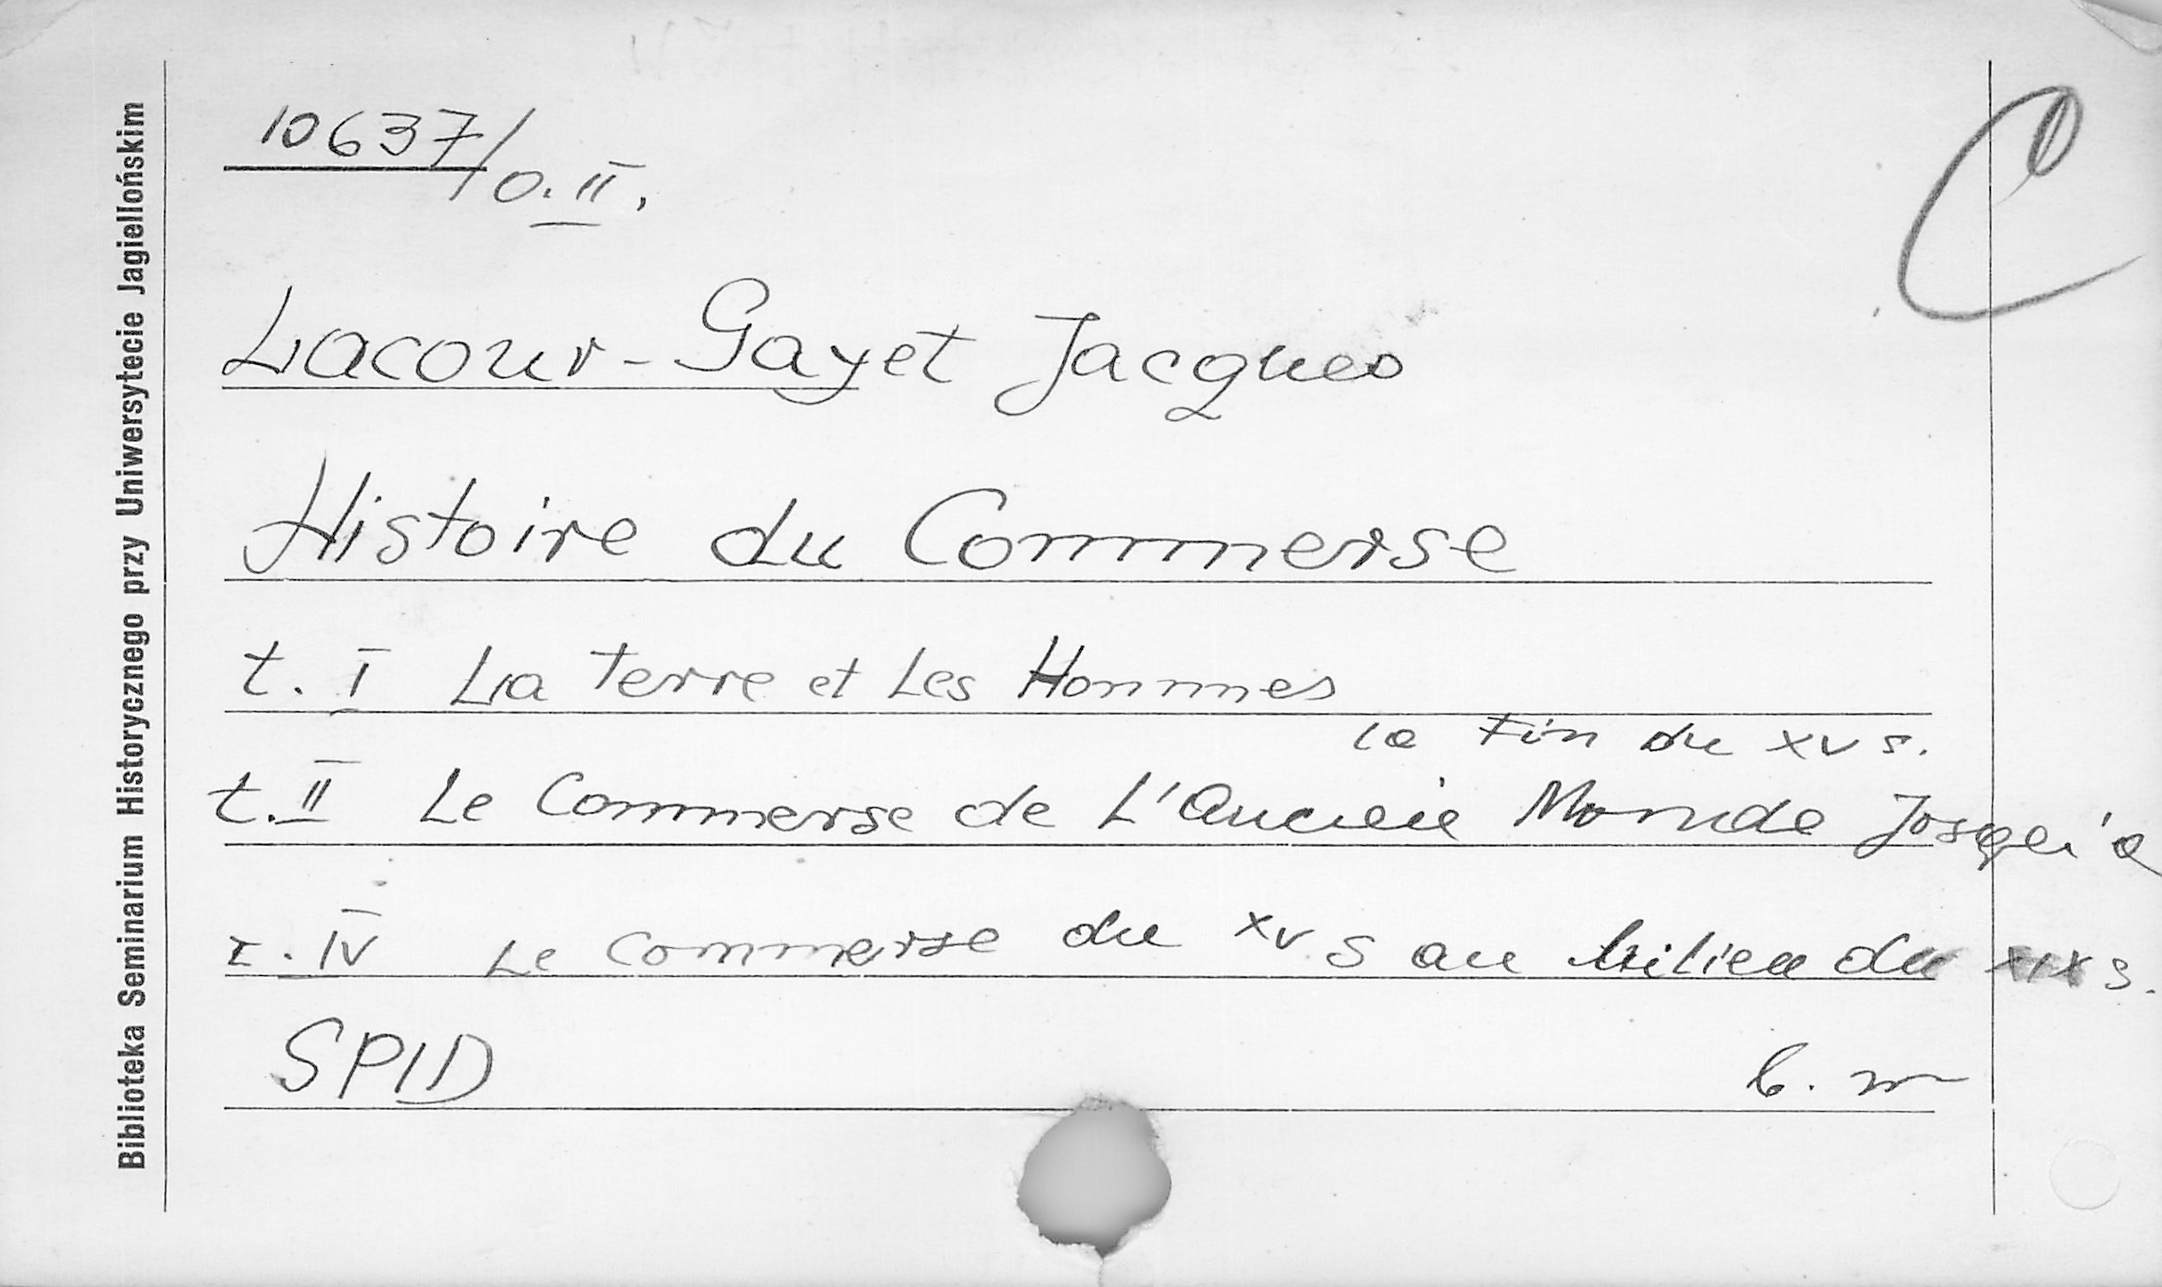 Biblioteka Seminarium Historycznego przy Uniwersytecie Jagiellońskim
C
10637/O.II.
Lacour-Gayet Jacques
Histoire du Commerse
t. I La Terre et Les Hommes
la Fin du XV s.
t. II Le Commerse de L'Ancien Monde Josqu'a
t. IV Le Commerse du XV s au Milieu du XIX s.
SPID